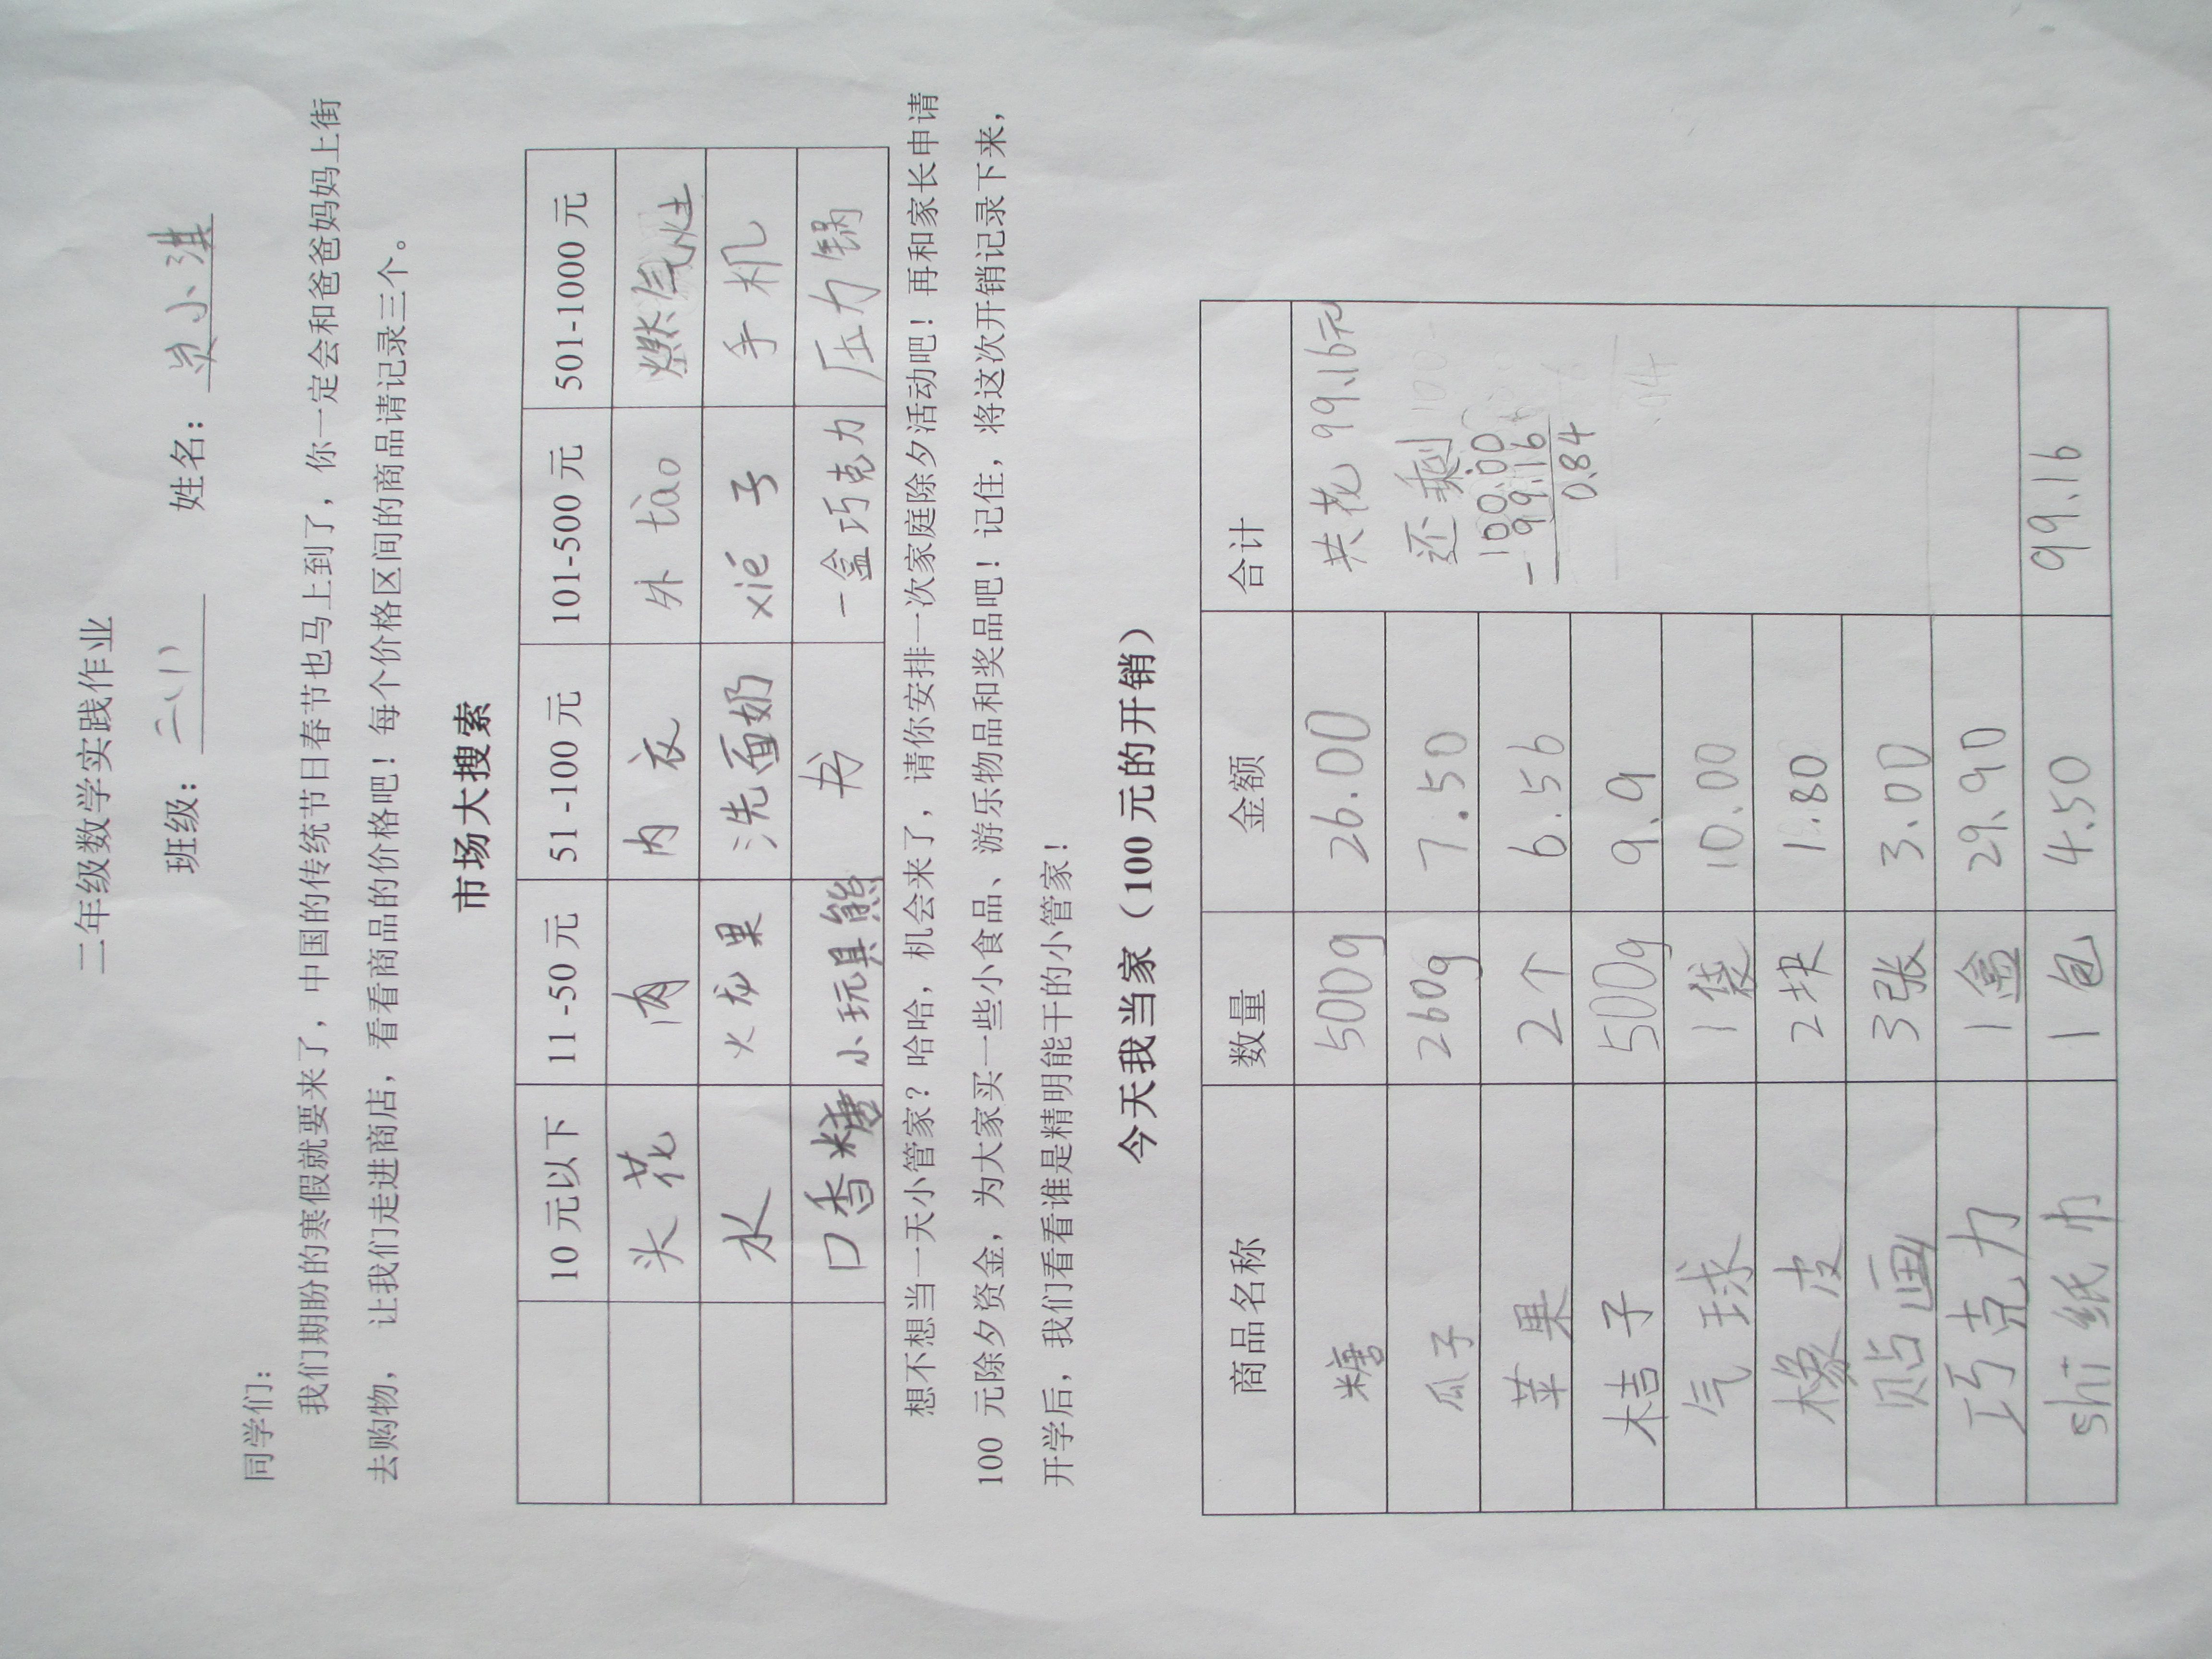 二年级数学实践作业
班级：二（1） 姓名：小淇
同学们：
我们期盼的寒假就要来了，中国的传统节日春节也马上到了，你一定会和爸爸妈妈上街
去购物， 让我们走进商店，看看商品的价格吧！每个价格区间的商品请记录三个。
市场大搜索
10 元以下 11 -50 元 51 -100 元 101-500 元 501-1000 元
头花 肉 内衣 外tào 燃气灶
水 火龙果 洗面奶 xié子 手机
口香糖 小玩具熊 书 一盒巧克力 压力锅
想不想当一天小管家？哈哈，机会来了，请你安排一次家庭除夕活动吧！再和家长申请
100 元除夕资金，为大家买一些小食品、游乐物品和奖品吧！记住，将这次开销记录下来，
开学后，我们看看谁是精明能干的小管家！
今天我当家（100 元的开销）
商品名称 数量 金额 合计
糖 500g 26.00 共花99.16元
瓜子 260g 7.50 还剩
苹果 2个 6.56 100.00
桔子 500g 9.9 -99.16
气球 1袋 10.00 0.84
橡皮 2块 1.80
贴画 3张 3.00
巧克力 1盒 29.90
shī纸巾 1包 4.50 99.16